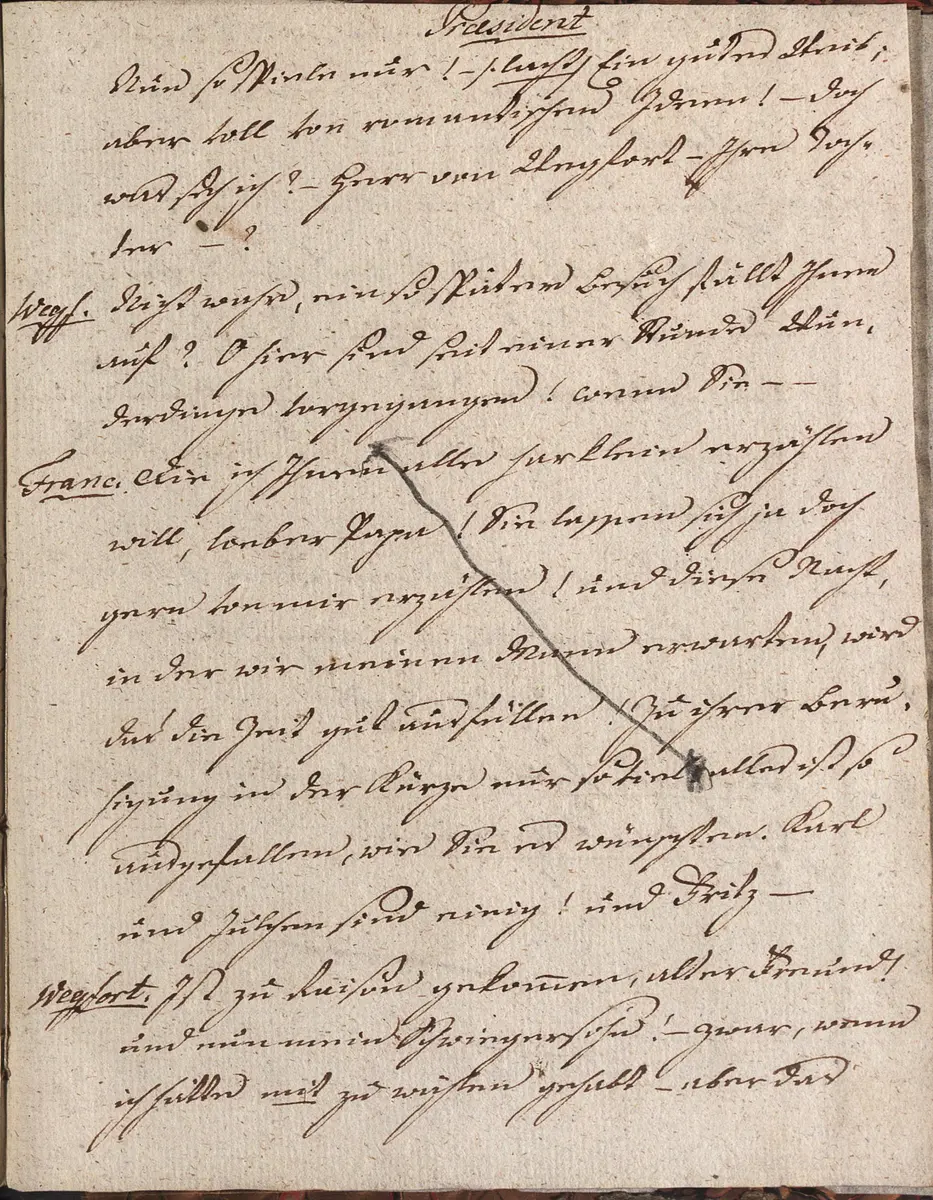 Præsident
Nun so spiele nur! – /:lacht:/ Ein gutes Weib;
aber voll von romantischen Ideen! – doch
was seh ich? – Herr von Wegfort – Ihre Toch-
ter – ?
Wegf. Nicht wahr, ein so später Besuch fällt Ihnen
auf? O hier sind seit einer Stunde Wun-
derdinge vorgegangen! wenn Sie – –
Franc. Die ich Ihnen alle harklein erzählen
will, lieber Papa! Sie lassen sich ja doch
gern von mir erzählen! und diese Nacht,
in der wir meinen Mann erwarten, wird
das die Zeit gut ausfüllen! Zu ihrer Beru-
higung in der Kürze nur so viel: alles ist so
ausgefallen, wie Sie es wünschten. Karl
und Julchen sind einig! und Fritz –
Wegfort. Ist zu Raison gekom̅en, alter Freund!
und nun mein Schwiegersohn! – zwar, wenn
ich hätte mit zu wählen gehabt – aber das